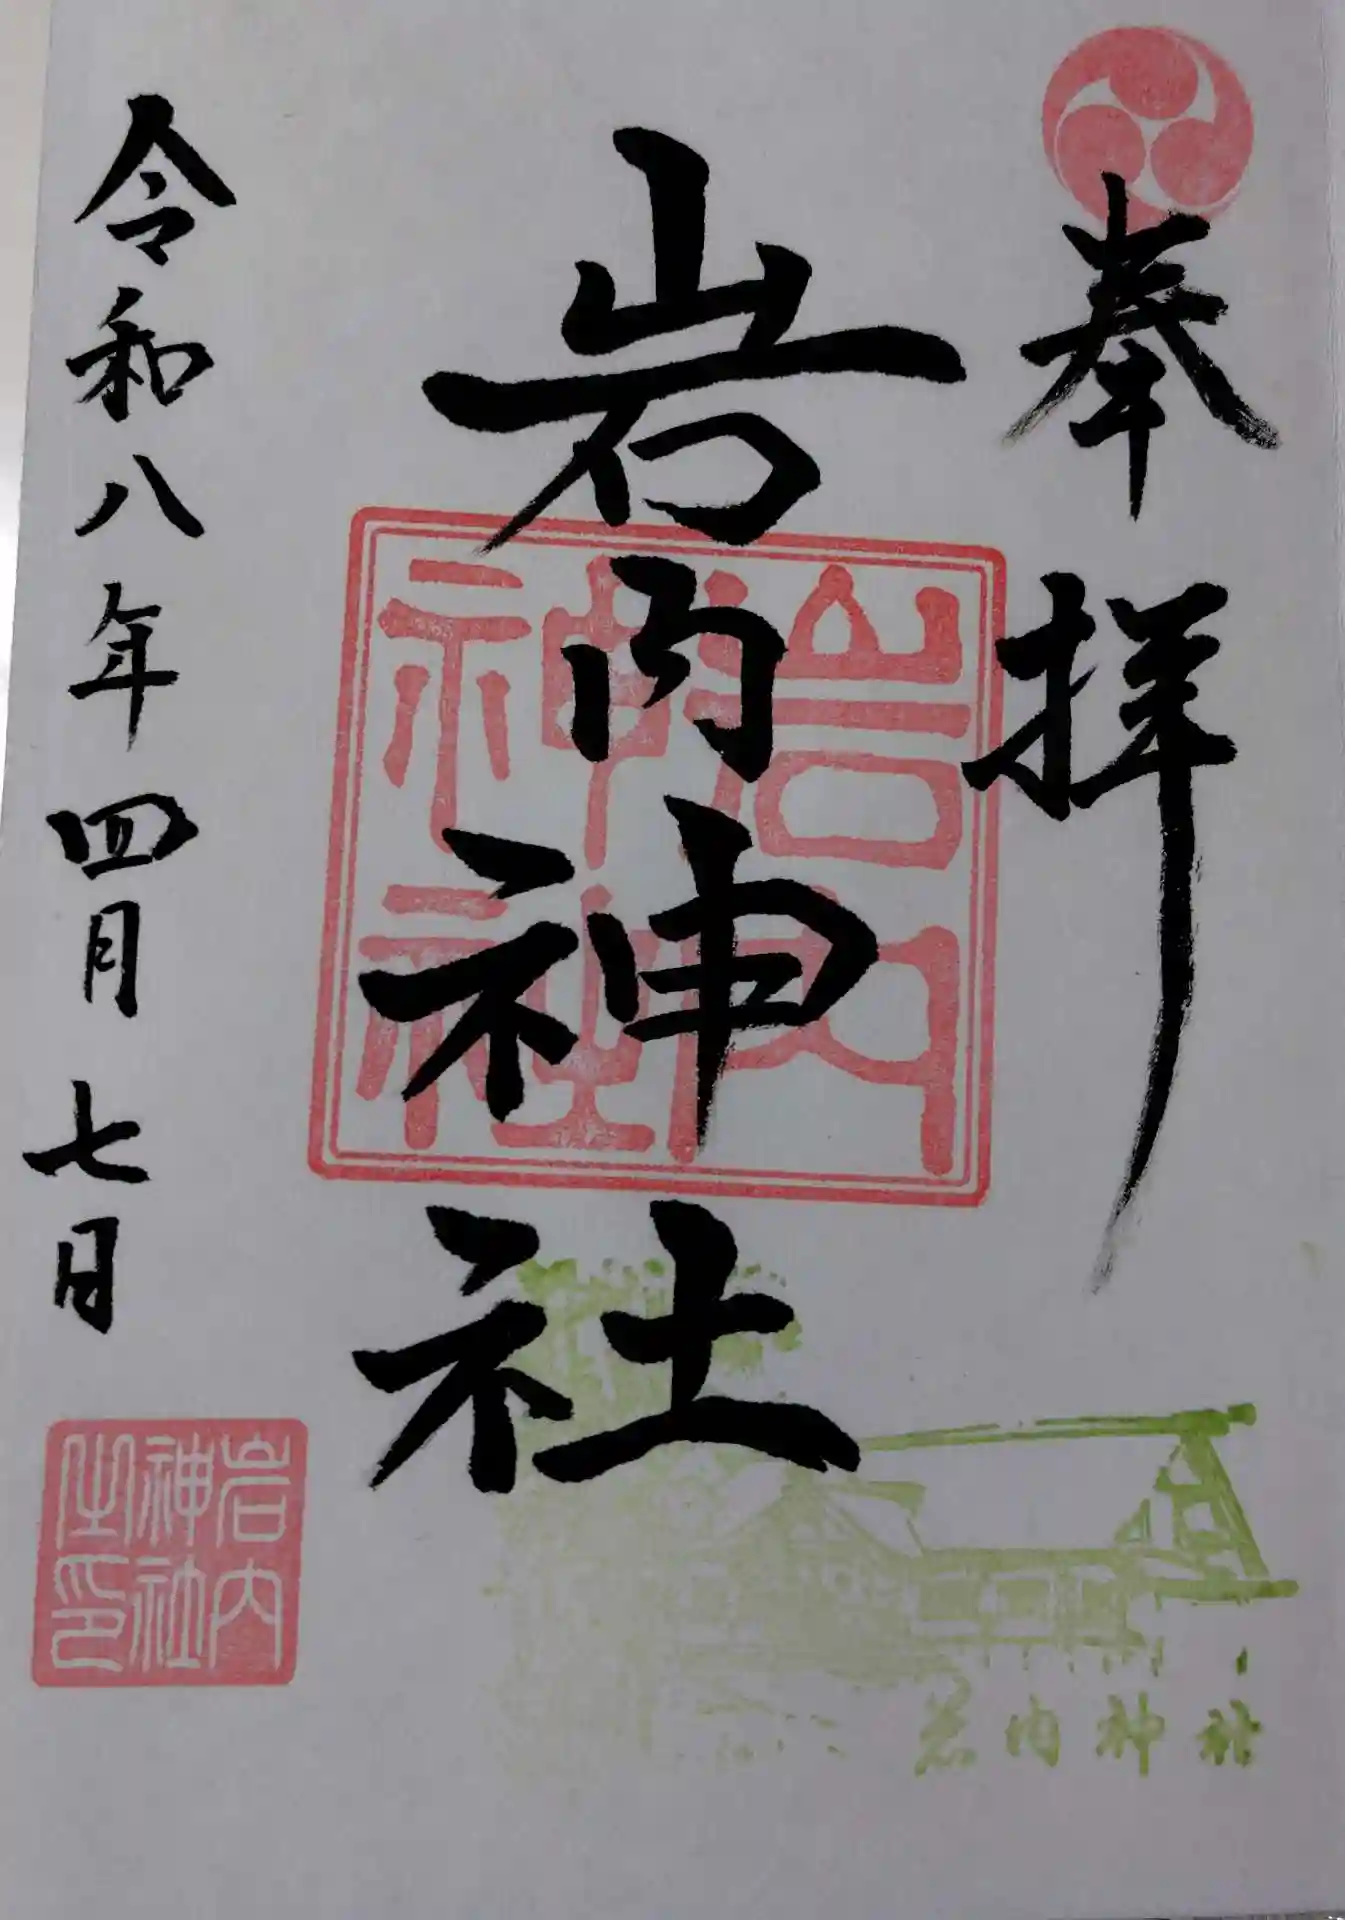 奉拝
岩内神社
令和八年四月七日
岩内
神社
岩内
神社
之印
岩内神社